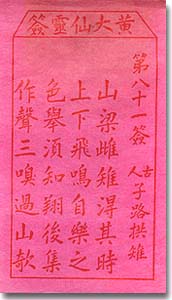 黃大仙靈簽
第八十一簽
古人 子路拱雉
山梁雌雉淂其時
上下飛鳴自樂之
色舉湏知翔後集
作聲三嗅過山欹